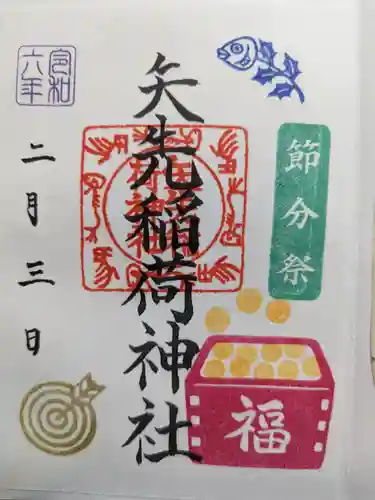 節分祭
福
矢先稲荷神社
令和
六年
二月三日